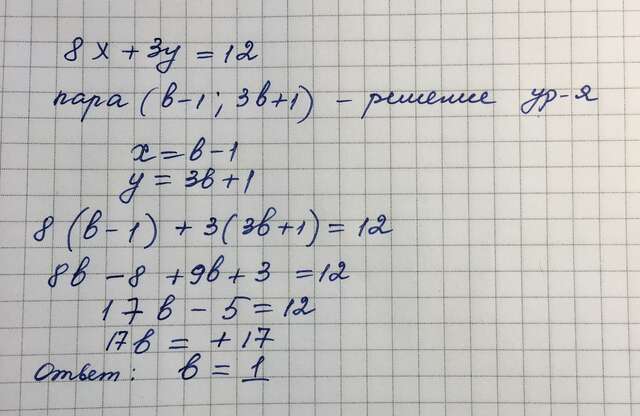 8x + 3y = 12
пара (в-1; 3в+1) - решение ур-я
x = в-1
y = 3в+1
8 (в-1) + 3(3в+1) = 12
8в - 8 + 9в + 3 = 12
17в - 5 = 12
17в = + 17
Ответ: в = 1